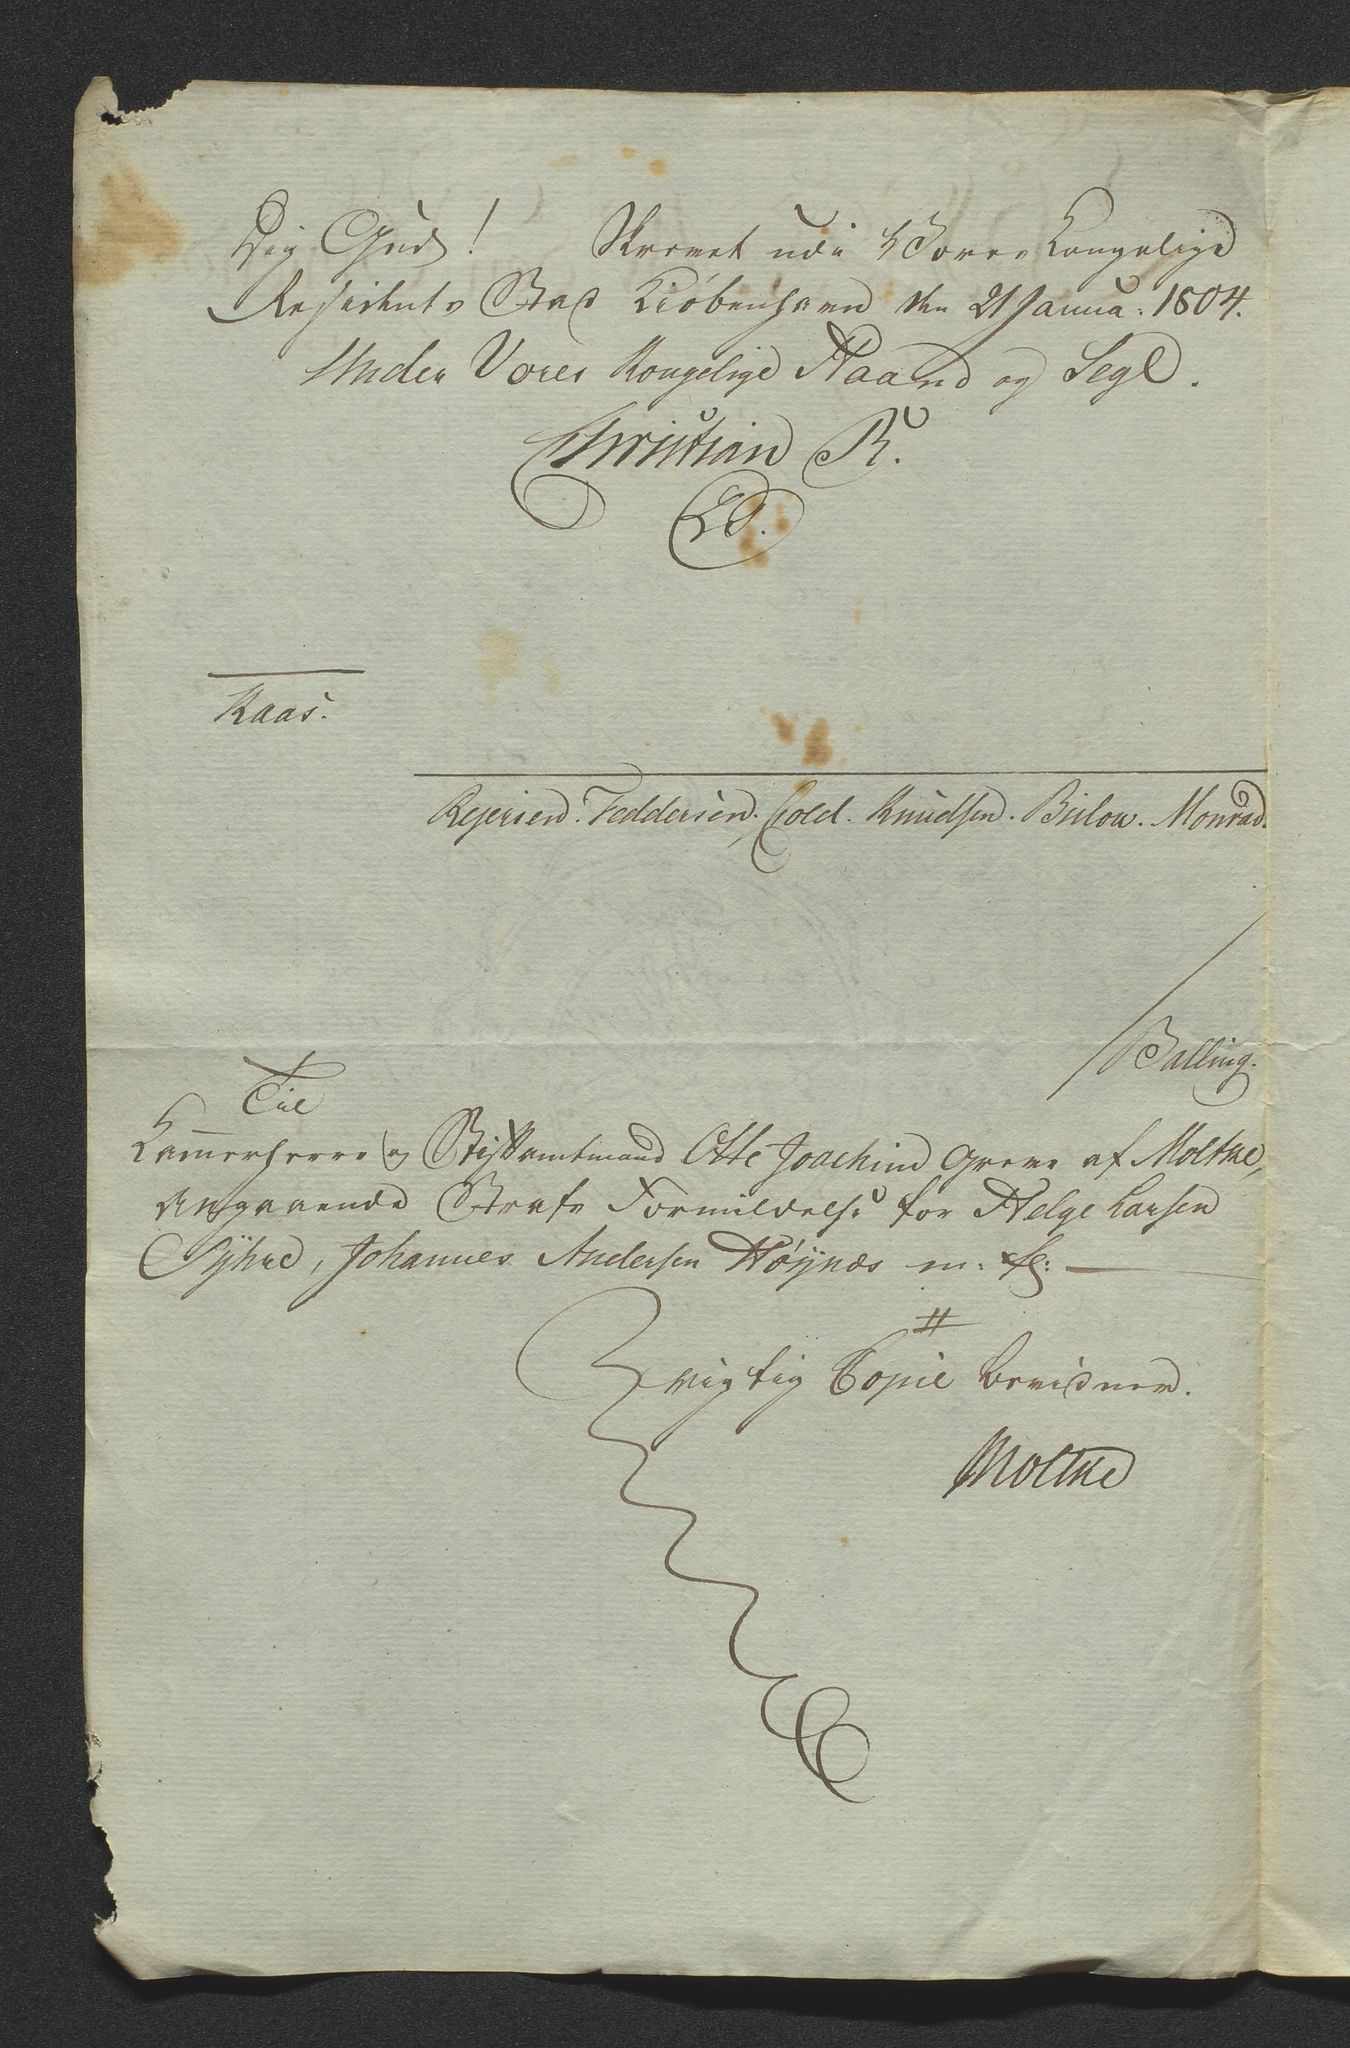 Dig Gud! Skrevet udi Vores Kongelige
Residents Stad Kiöbenhavn den 21 Janua: 1804.
Under Vores Kongelige Haand og Segl.
Christian R.
LS.
Kaas.
Rejersen. Feddersen. Cold. Knudsen. Bülow. Monrad.
Balling.
Til
Kammerherre og Stiftamtmand Otte Joachim Greve af Moltke,
Angaaende Strafs Formildelse for Helge Larsen
Syhre, Johannes Andersen Höÿnæs m. fl:
rigtig Copie bevidner.
Moltke